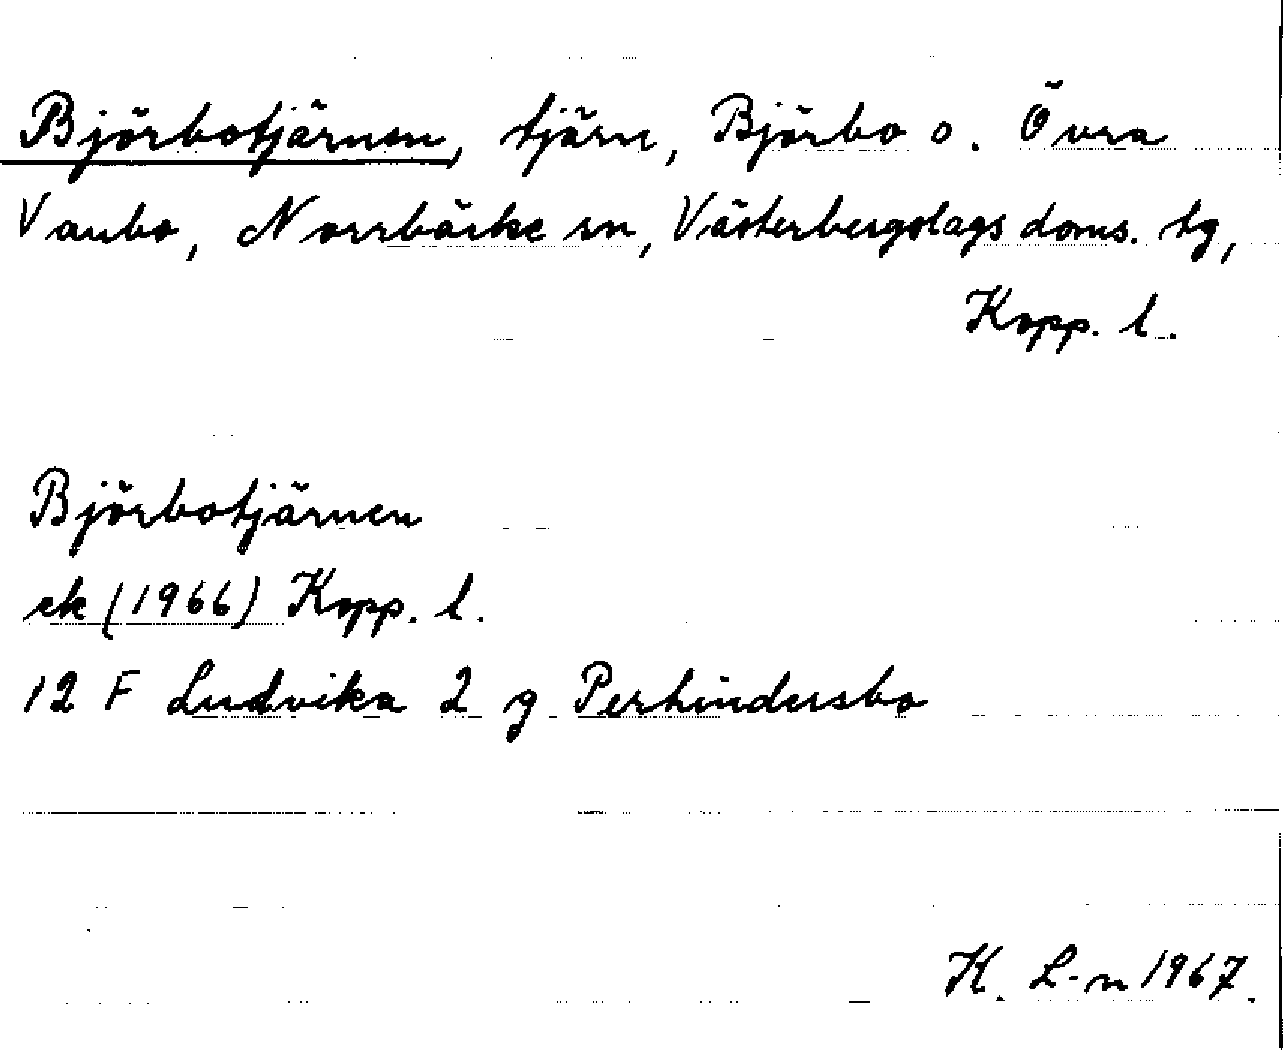 Björbotjärnen, tjärn, Björbo o. Övra
Vanbo, Norrbärke sn, Västerbergslags doms. tg,
Kopp. l.
Björbotjärnen
ek (1966) Kopp. l.
12 F Ludvika 2 g Perhindersbo
K. L-n 1967.